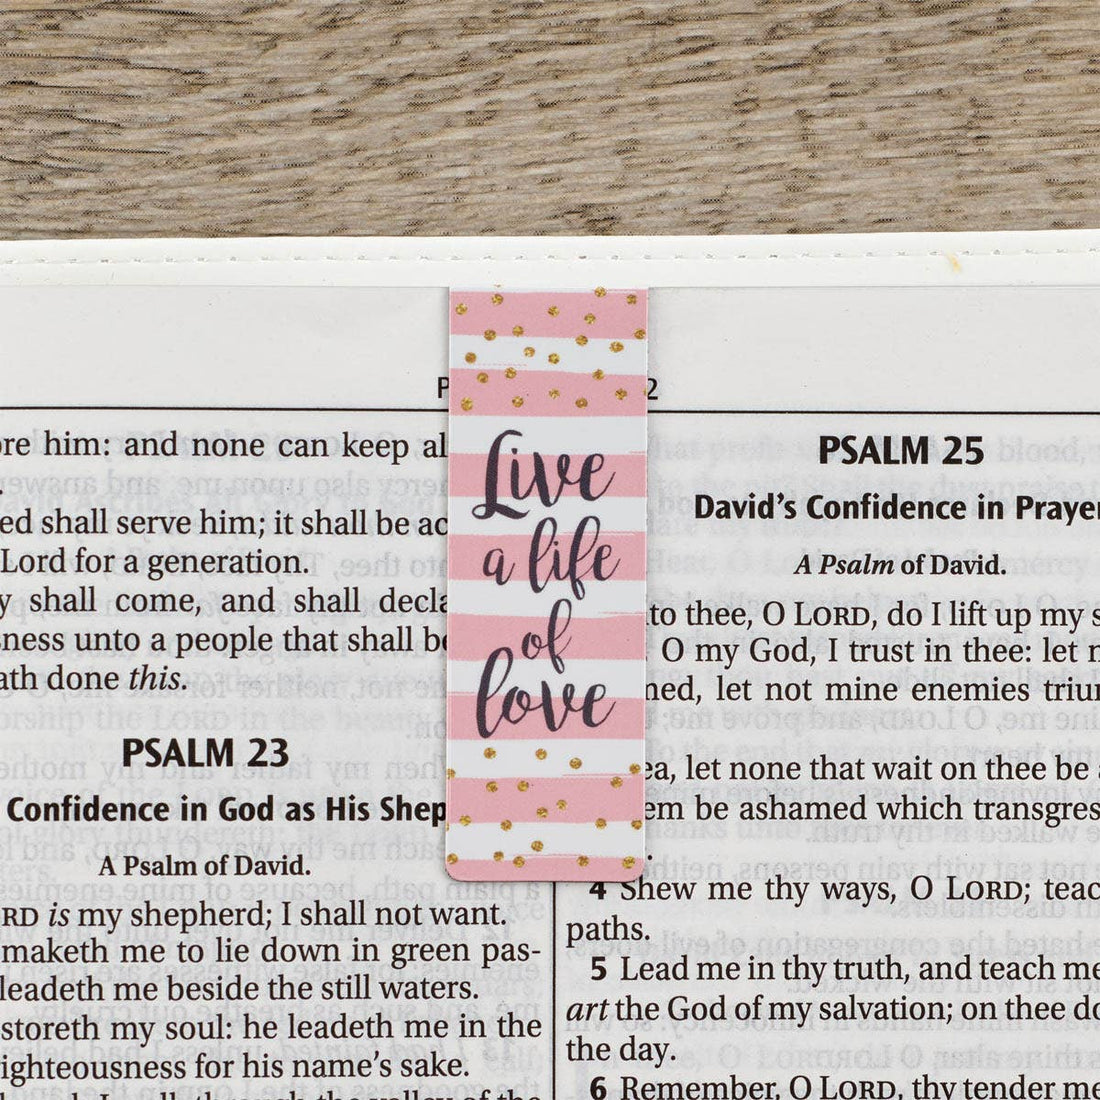 P 2
ore him: and none can keep al
.
ed shall serve him; it shall be ac
Lord for a generation.
y shall come, and shall decla
sness unto a people that shall be
ath done this.
PSALM 23
Confidence in God as His Shep
A Psalm of David.
RD is my shepherd; I shall not want.
maketh me to lie down in green pas-
leadeth me beside the still waters.
storeth my soul: he leadeth me in the
ighteousness for his name's sake.
Live
a life
of
love
PSALM 25
David's Confidence in Prayer
A Psalm of David.
to thee, O LORD, do I lift up my s
O my God, I trust in thee: let n
ned, let not mine enemies trium
ea, let none that wait on thee be a
em be ashamed which transgres
.
4 Shew me thy ways, O LORD; teac
paths.
5 Lead me in thy truth, and teach me
art the God of my salvation; on thee do
the day.
6 Remember, O LORD, thy tender me